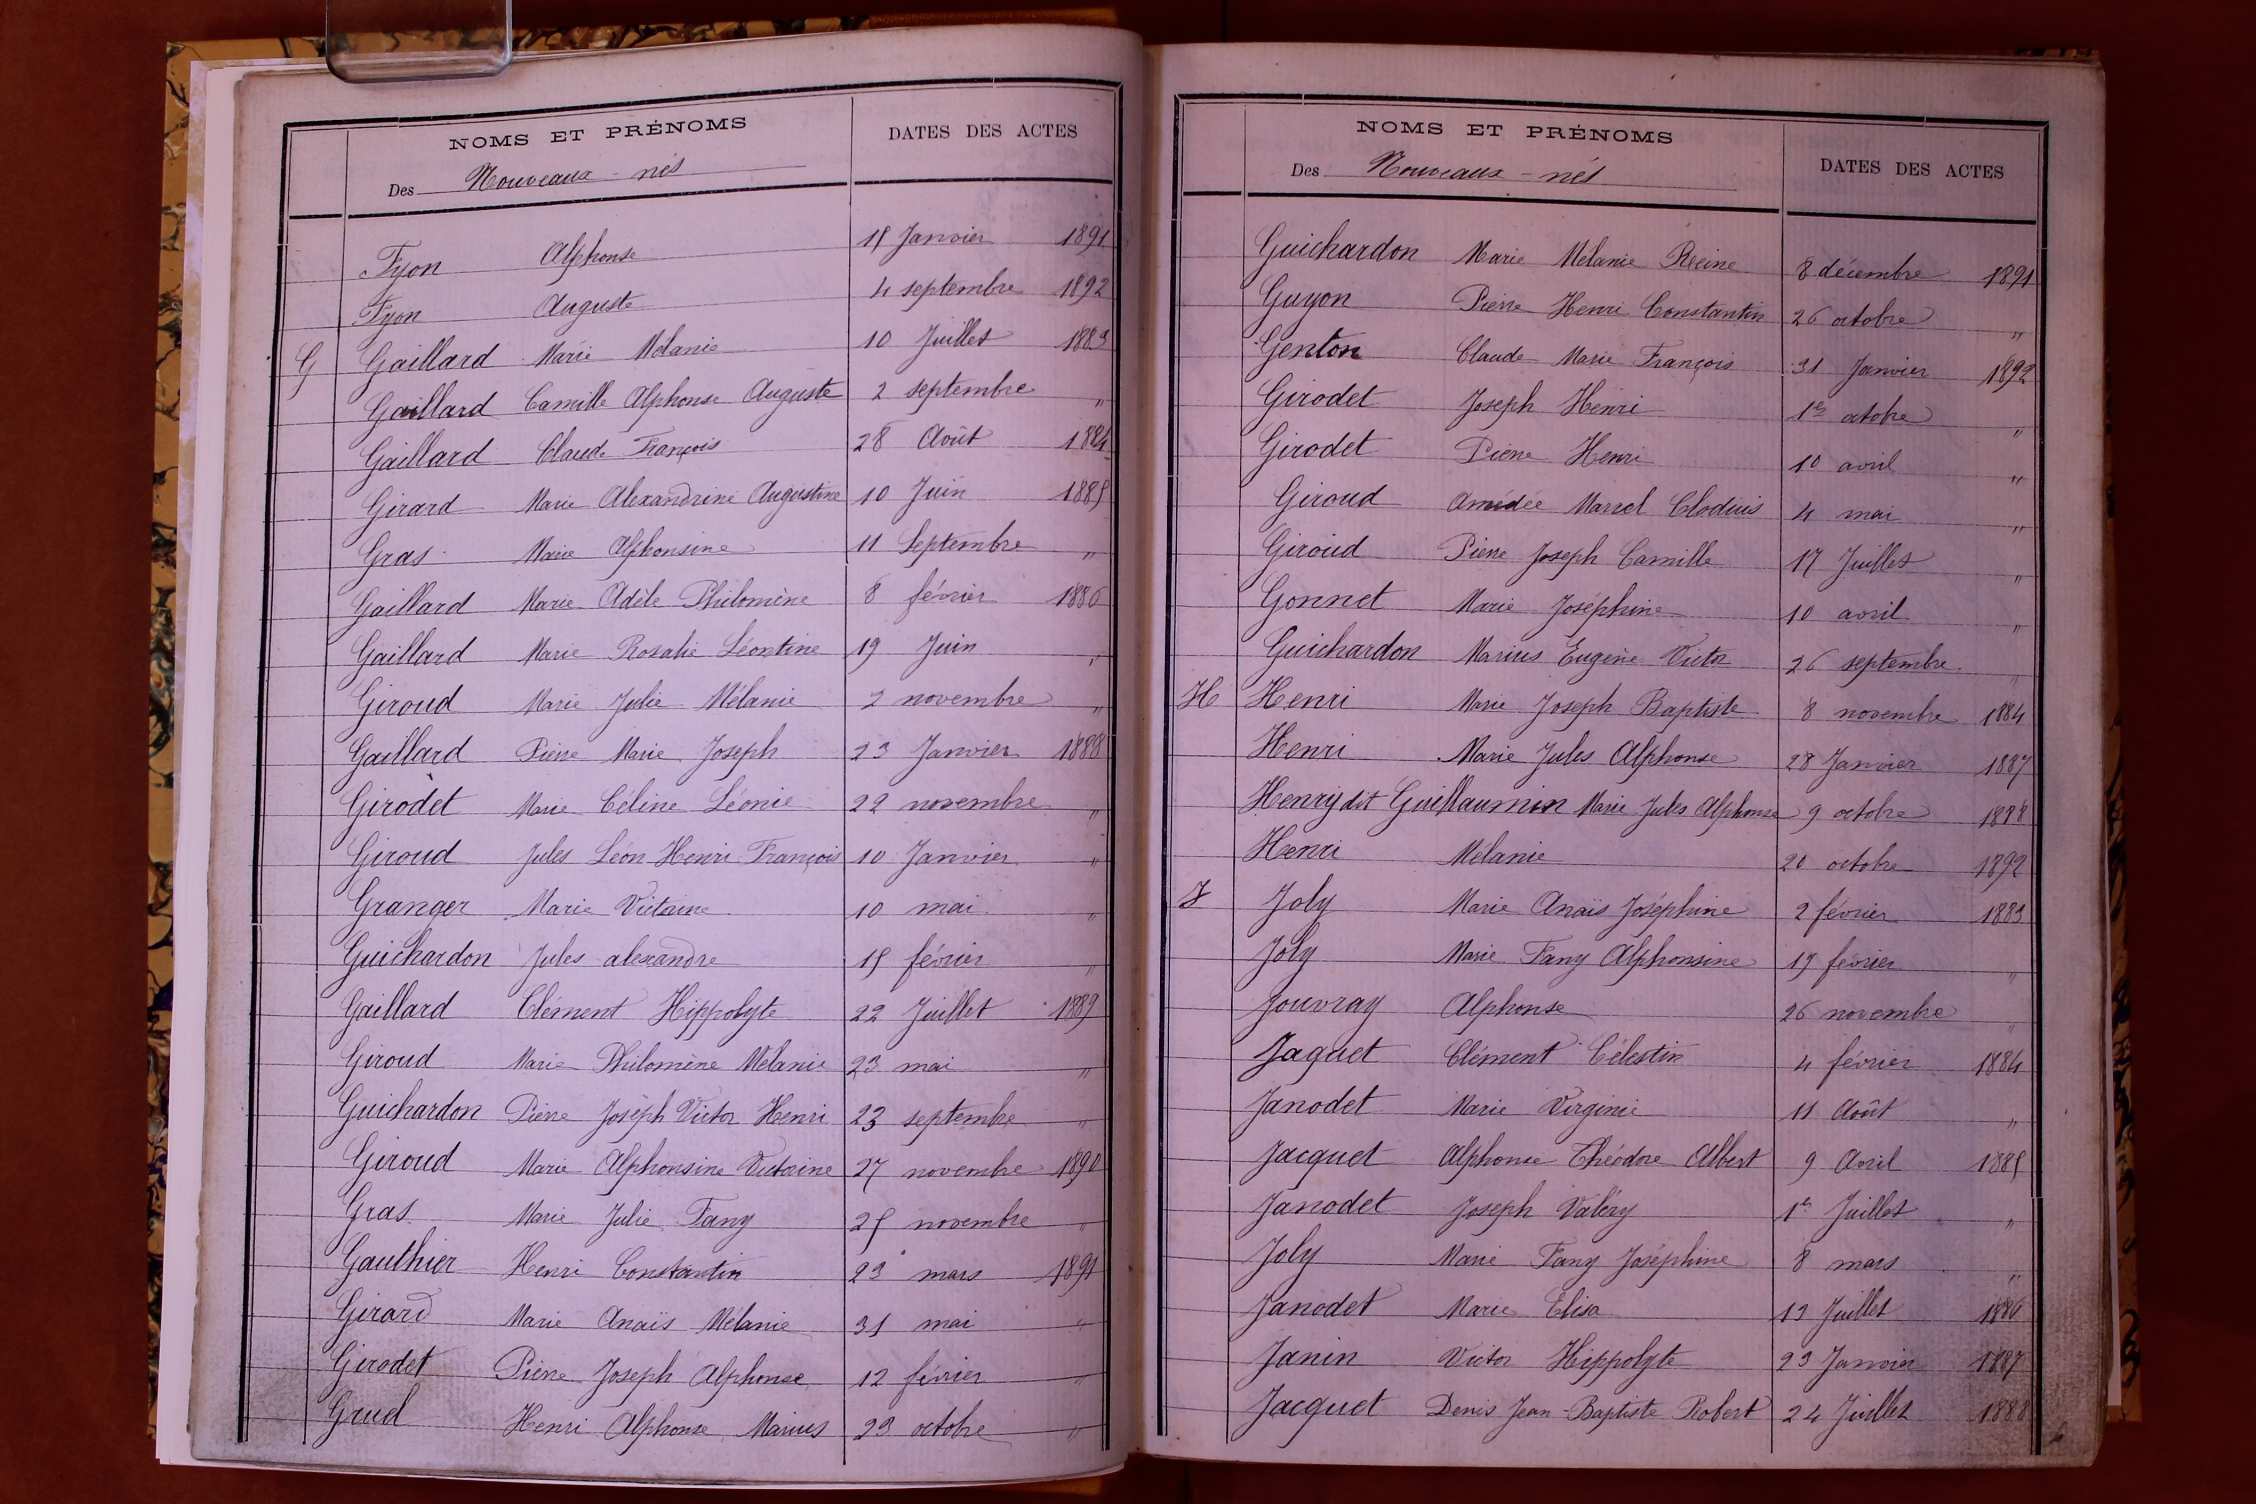 NOMS ET PRÉNOMS DATES DES ACTES
Des Nouveaux-nés
Fyon Alphonse 15 Janvier 1891
Fyon Auguste 4 septembre 1892
G Gaillard Marie Mélanie 10 Juillet 1883
Gaillard Camille Alphonse Auguste 2 septembre "
Gaillard Claude François 28 Août 1884
Girard Marie Alexandrine Augustine 10 Juin 1885
Gras Marie Alphonsine 11 Septembre "
Gaillard Marie Adèle Philomène 8 février 1886
Gaillard Marie Rosalie Léontine 19 Juin "
Giroud Marie Julie Mélanie 2 novembre "
Gaillard Pierre Marie Joseph 23 Janvier 1888
Girodet Marie Céline Léonie 22 novembre "
Giroud Jules Léon Henri François 10 Janvier "
Granger Marie Victorine 10 mai "
Guichardon Jules alexandre 15 février "
Gaillard Clément Hippolyte 22 Juillet 1889
Giroud Marie Philomène Mélanie 23 mai "
Guichardon Pierre Joseph Victor Henri 23 septembre "
Giroud Marie Alphonsine Victorine 27 novembre 1890
Gras Marie Julie Fany 25 novembre "
Gauthier Henri Constantin 23 mars 1891
Girard Marie Anaïs Mélanie 31 mai "
Girodet Pierre Joseph Alphonse 12 février "
Gruel Henri Alphonse Marius 23 octobre "
NOMS ET PRÉNOMS DATES DES ACTES
Des Nouveaux-nés
Guichardon Marie Mélanie Reine 8 décembre 1891
Guyon Pierre Henri Constantin 26 octobre "
Genton Claude Marie François 31 Janvier 1892
Girodet Joseph Henri 1er octobre "
Girodet Pierre Henri 10 avril "
Giroud Amédée Marcel Clodius 4 mai "
Giroud Pierre Joseph Camille 17 Juillet "
Gonnet Marie Joséphine 10 avril "
Guichardon Marius Eugène Victor 26 septembre "
H Henri Marie Joseph Baptiste 8 novembre 1884
Henri Marie Jules Alphonse 28 Janvier 1887
Henry dit Guillaumin Marie Jules Alphonse 9 octobre 1888
Henri Mélanie 20 octobre 1892
J Joly Marie Anaïs Joséphine 2 février 1883
Joly Marie Fany Alphonsine 19 février "
Jouvray Alphonse 26 novembre "
Jaquet Clément Célestin 4 février 1884
Janodet Marie Virginie 11 Août "
Jacquet Alphonse Théodore Albert 9 Avril 1885
Janodet Joseph Valéry 1er Juillet "
Joly Marie Fany Joséphine 8 mars "
Janodet Marie Elisa 13 Juillet 1886
Janin Victor Hippolyte 23 Janvier 1887
Jacquet Denis Jean-Baptiste Robert 24 Juillet 1888